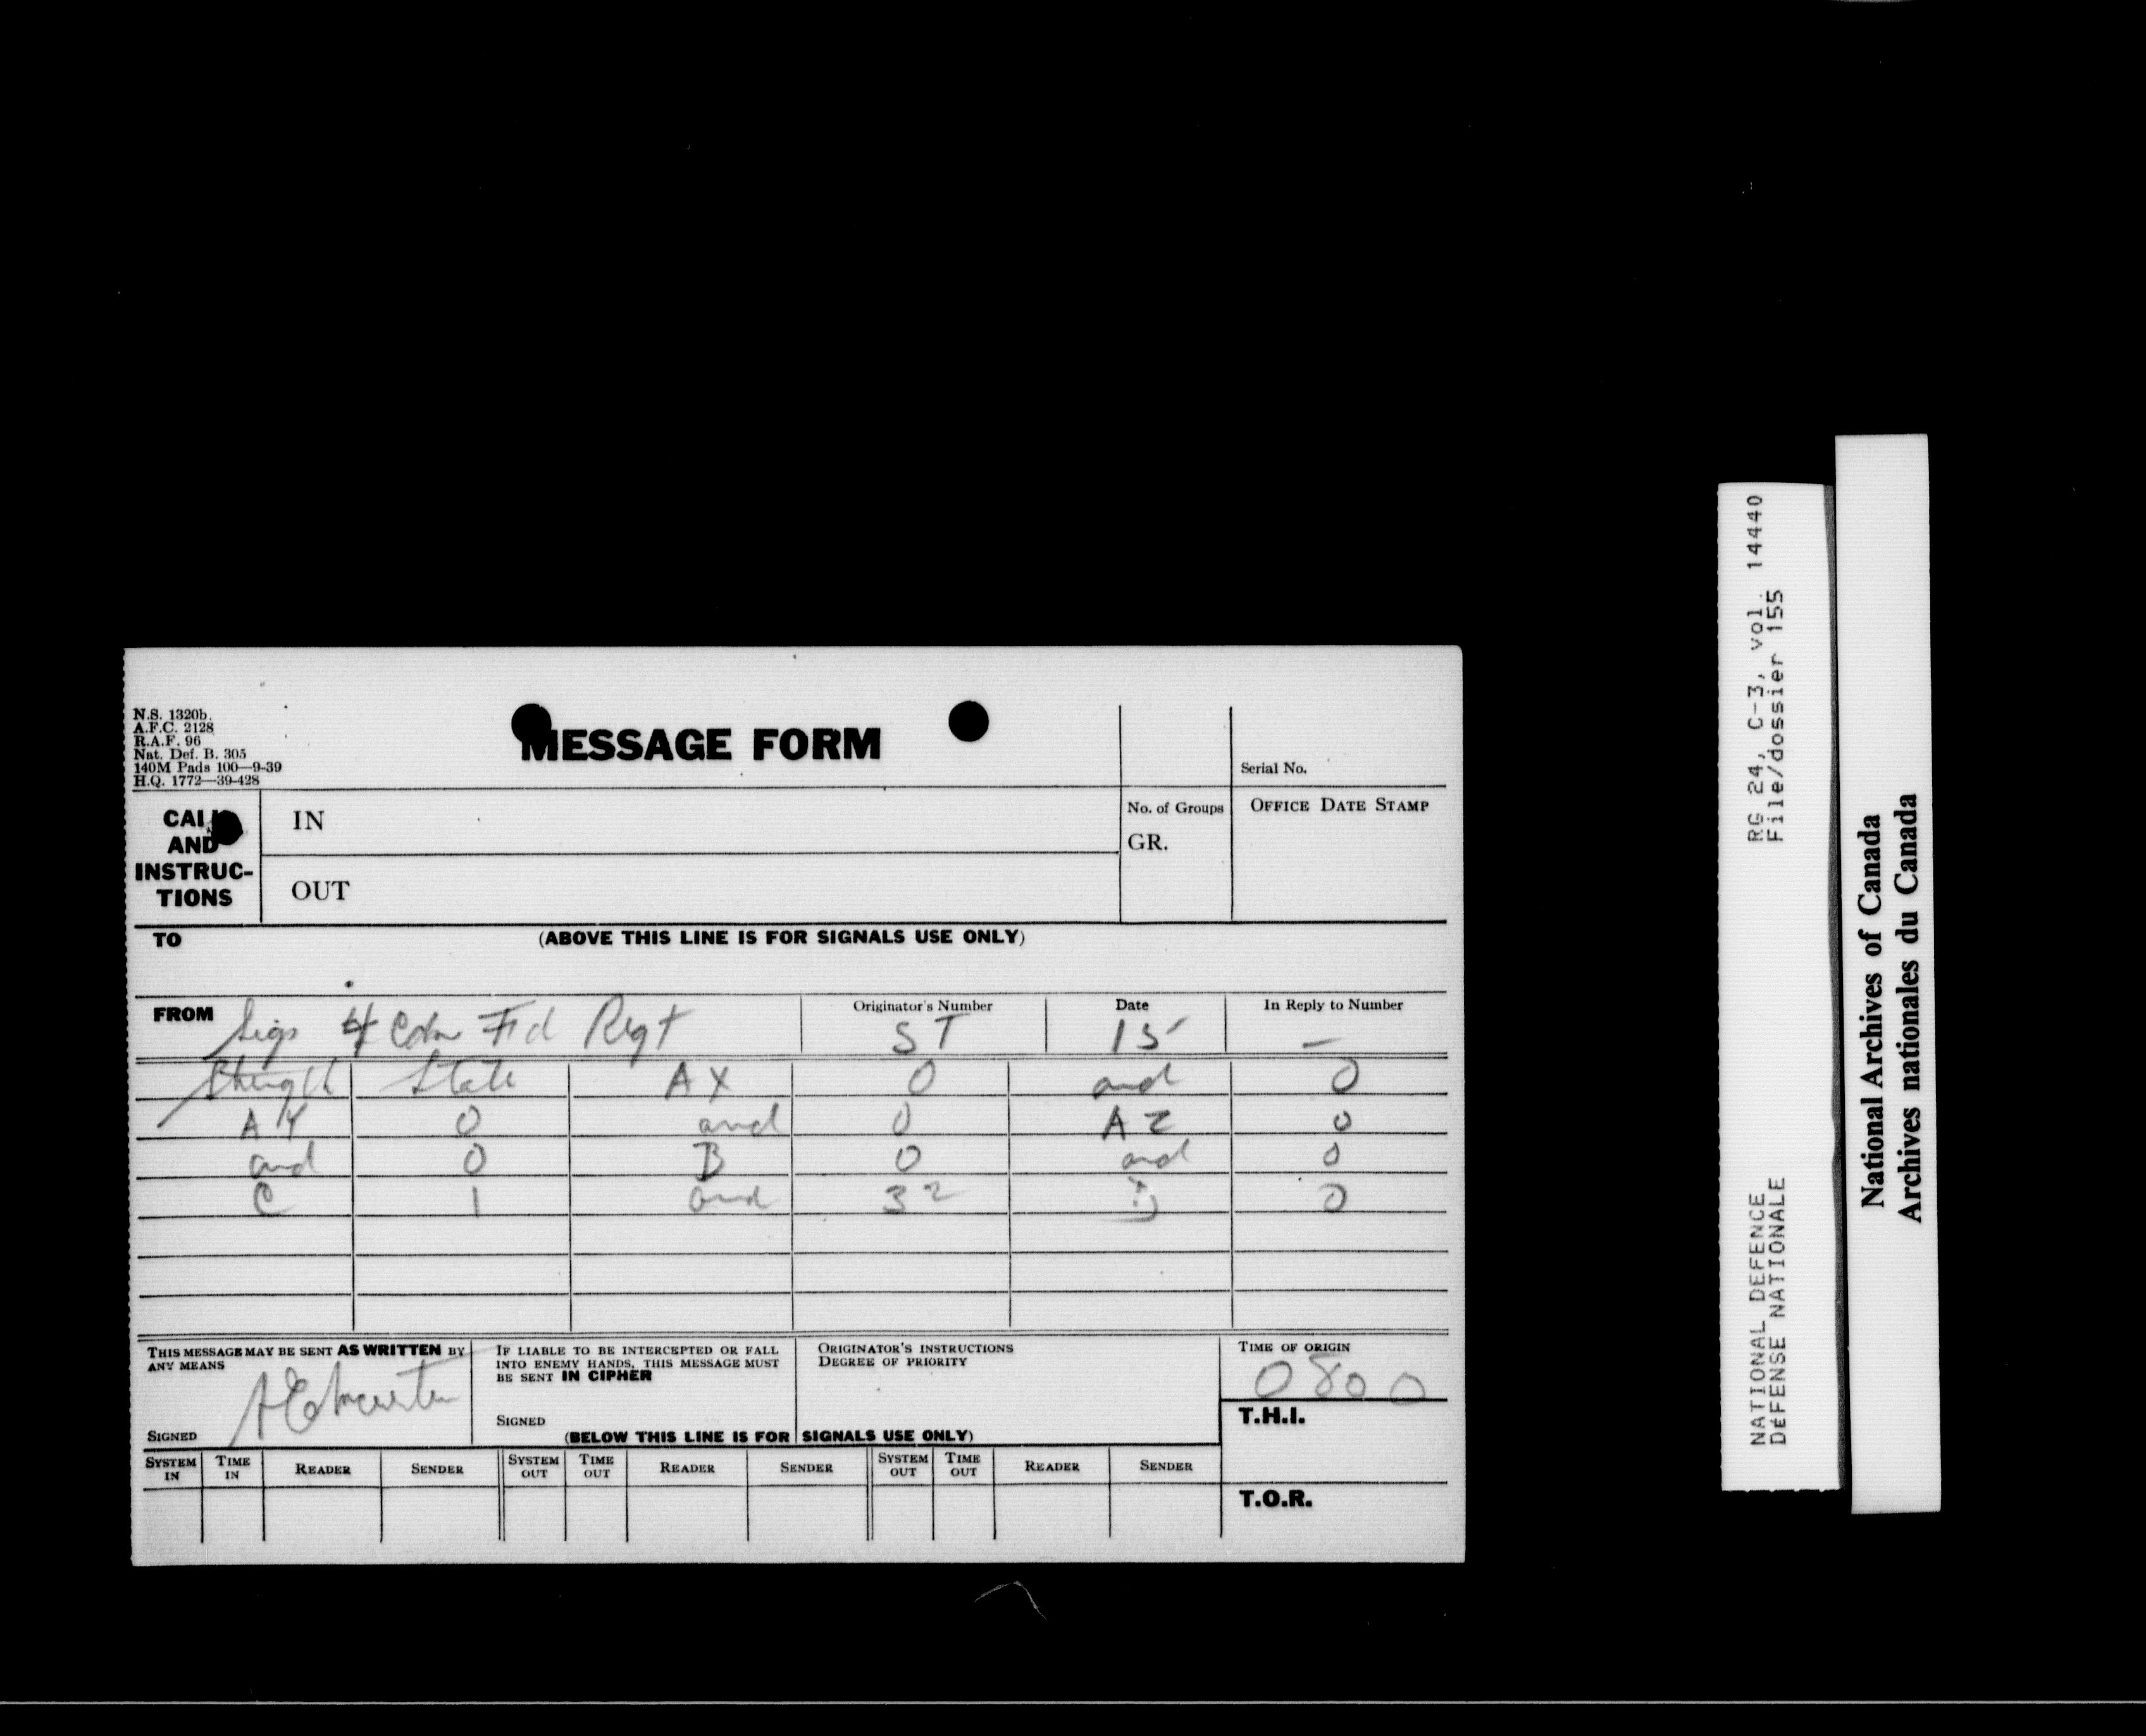 N.S. 1320b.
A.F.C. 2128
R.A.F. 96
Nat. Def. B. 305
140M Pads 100—9-39
H.Q. 1772—39-428
MESSAGE FORM
Serial No.
CALL
AND
INSTRUC-
TIONS
IN
OUT
No. of Groups
GR.
OFFICE DATE STAMP
TO
(ABOVE THIS LINE IS FOR SIGNALS USE ONLY)
FROM Sigs 4 Cdn Fd Regt
Originator's Number
ST
Date
15
In Reply to Number
—
Strength State AX 0 and 0
AY 0 and 0 AZ 0
and 0 B 0 and 0
C 1 and 32 D 0
THIS MESSAGE MAY BE SENT AS WRITTEN BY
ANY MEANS
SIGNED
IF LIABLE TO BE INTERCEPTED OR FALL
INTO ENEMY HANDS, THIS MESSAGE MUST
BE SENT IN CIPHER
SIGNED
ORIGINATOR'S INSTRUCTIONS
DEGREE OF PRIORITY
TIME OF ORIGIN
0800
T.H.I.
T.O.R.
(BELOW THIS LINE IS FOR SIGNALS USE ONLY)
SYSTEM IN TIME IN READER SENDER SYSTEM OUT TIME OUT READER SENDER SYSTEM OUT TIME OUT READER SENDER
RG 24, C-3, vol. 14440
File/dossier 155
NATIONAL DEFENCE
DÉFENSE NATIONALE
National Archives of Canada
Archives nationales du Canada